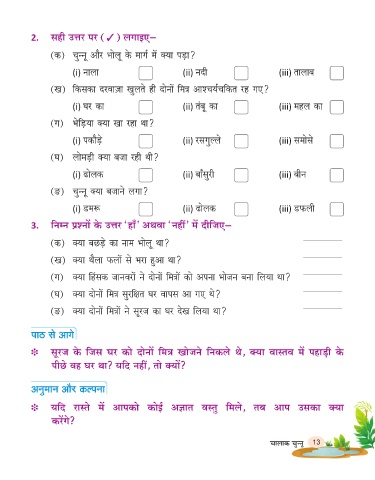 2. सही उत्तर पर ( ✓ ) लगाइए–
(क) चुन्नू और भोलू के मार्ग में क्या पड़ा?
(i) नाला (ii) नदी (iii) तालाब
(ख) किसका दरवाज़ा खुलते ही दोनों मित्र आश्चर्यचकित रह गए?
(i) घर का (ii) तंबू का (iii) महल का
(ग) भेड़िया क्या खा रहा था?
(i) पकौड़े (ii) रसगुल्ले (iii) समोसे
(घ) लोमड़ी क्या बजा रही थी?
(i) ढोलक (ii) बाँसुरी (iii) बीन
(ङ) चुन्नू क्या बजाने लगा?
(i) डमरू (ii) ढोलक (iii) डफली
3. निम्न प्रश्नों के उत्तर 'हाँ' अथवा 'नहीं' में दीजिए–
(क) क्या बछड़े का नाम भोलू था?
(ख) क्या थैला फलों से भरा हुआ था?
(ग) क्या हिंसक जानवरों ने दोनों मित्रों को अपना भोजन बना लिया था?
(घ) क्या दोनों मित्र सुरक्षित घर वापस आ गए थे?
(ङ) क्या दोनों मित्रों ने सूरज का घर देख लिया था?
पाठ से आगे
सूरज के जिस घर को दोनों मित्र खोजने निकले थे, क्या वास्तव में पहाड़ी के
पीछे वह घर था? यदि नहीं, तो क्यों?
अनुमान और कल्पना
यदि रास्ते में आपको कोई अज्ञात वस्तु मिले, तब आप उसका क्या
करेंगे?
चालाक चुन्नू 13